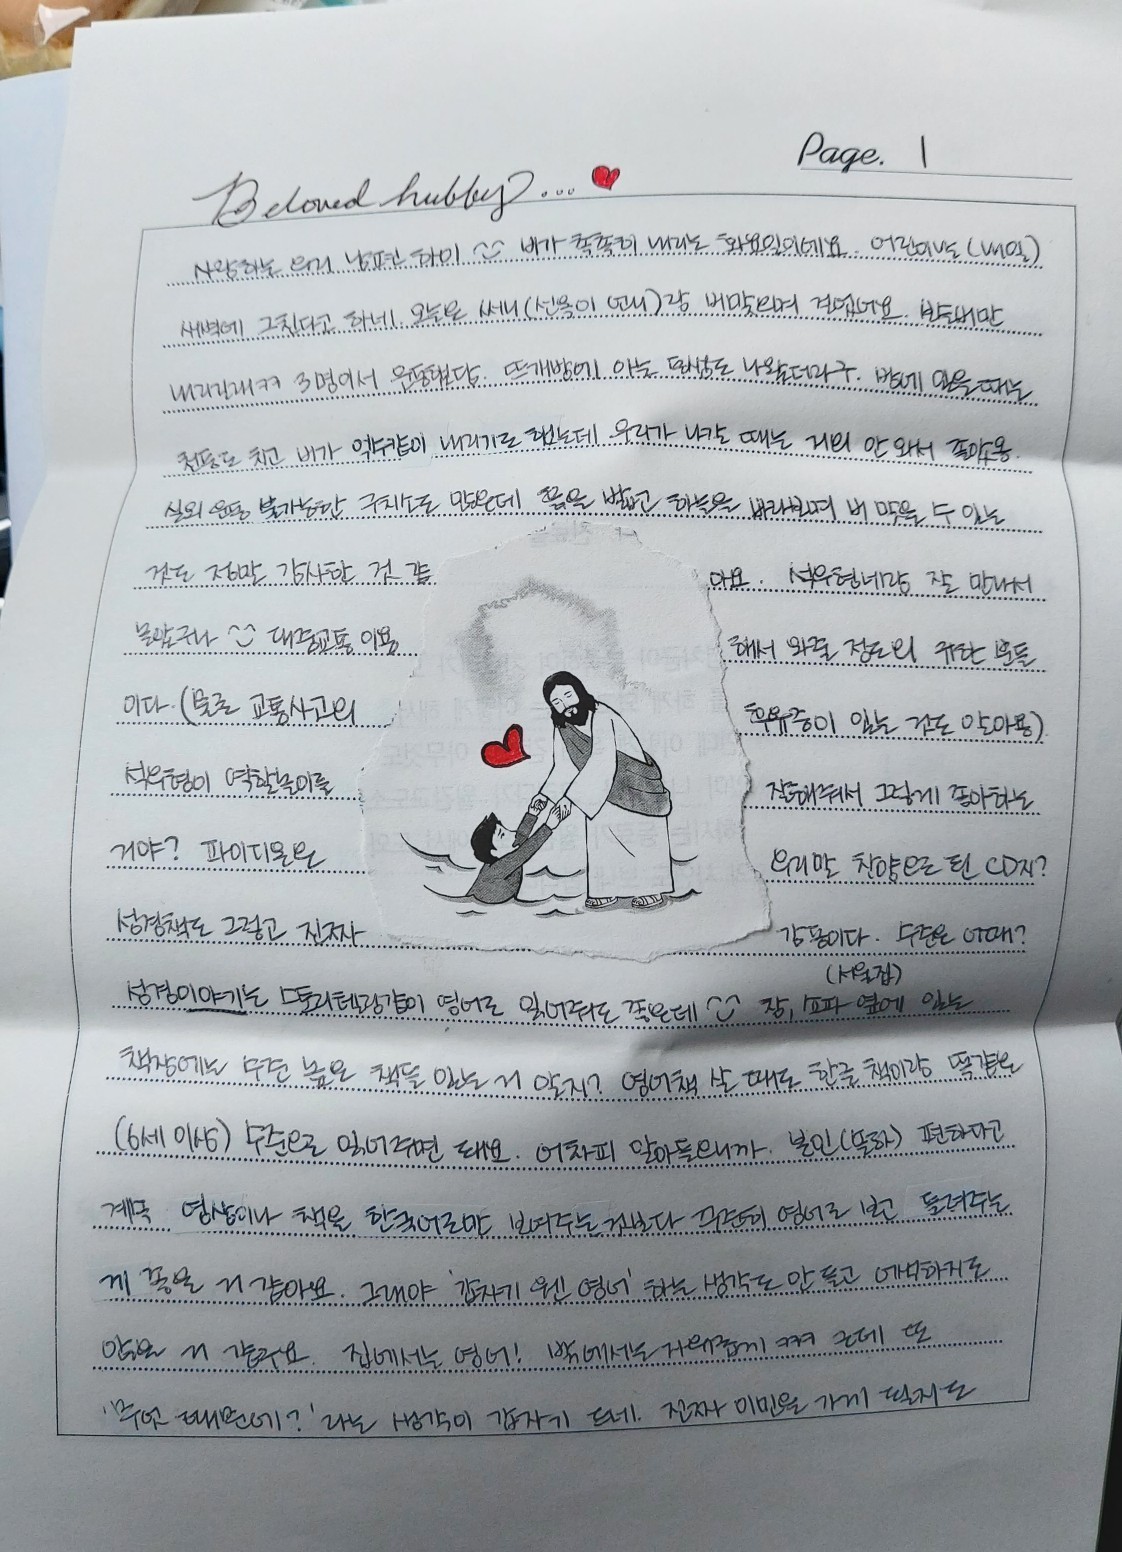 Page. 1
Beloved hubby...
사랑하는 우리 남편 하이 비가 촉촉히 내리는 화요일이에요. 어린이날 (내일)
새벽에 그친다고 하네. 오늘은 써니(선옥이 언니)랑 비맞으며 걸었어요. 반도내만
3명이서 운동했답. 뜨개방에 아는 동생도 나왔더라구. 방에 있을 때는
천둥도 치고 비가 억수같이 내리기로 했는데 우리가 나갈 때는 거의 안 와서 좋았용.
실외 운동 불가능한 구치소도 많은데 흙을 밟고 하늘을 바라보며 비 맞을 수 있는
것도 정말 감사한 것 같 아요. 석우형네랑 잘 만나서
놀았구나 대중교통 이용 해서 와줄 정도의 귀한 분들
이다. (물론 교통사고의 후유증이 있는 것도 알아용).
석우형이 역할놀이를 잘해줘서 그렇게 좋아하는
거야? 파이디온은 우리말 찬양으로 된 CD지?
성경책도 그렇고 진짜 감동이다. 수준은 어때?
(서울집)
성경이야기는 스토리텔링같이 영어로 읽어줘도 좋은데 장, 쇼파 옆에 있는
책장에는 수준 높은 책들 있는 거 알지? 영어책 살 때도 한글 책이랑 똑같은
(6세 이상) 수준으로 읽어주면 돼요. 어차피 알아들으니까. 본인(또하) 편하다고
계속 영상이나 책을 한국어로만 보여주는 것보다 꾸준히 영어로 보고 들려주는
게 좋을 거 같아요. 그래야 '갑자기 웬 영어' 하는 생각도 안 들고 어색하지도
않을 거 같구요. 집에서는 영어! 밖에서는 자유롭게 ㅋㅋㅋ 근데 또
'무엇 때문에?' 라는 생각이 갑자기 드네. 진짜 이민을 가게 될지도